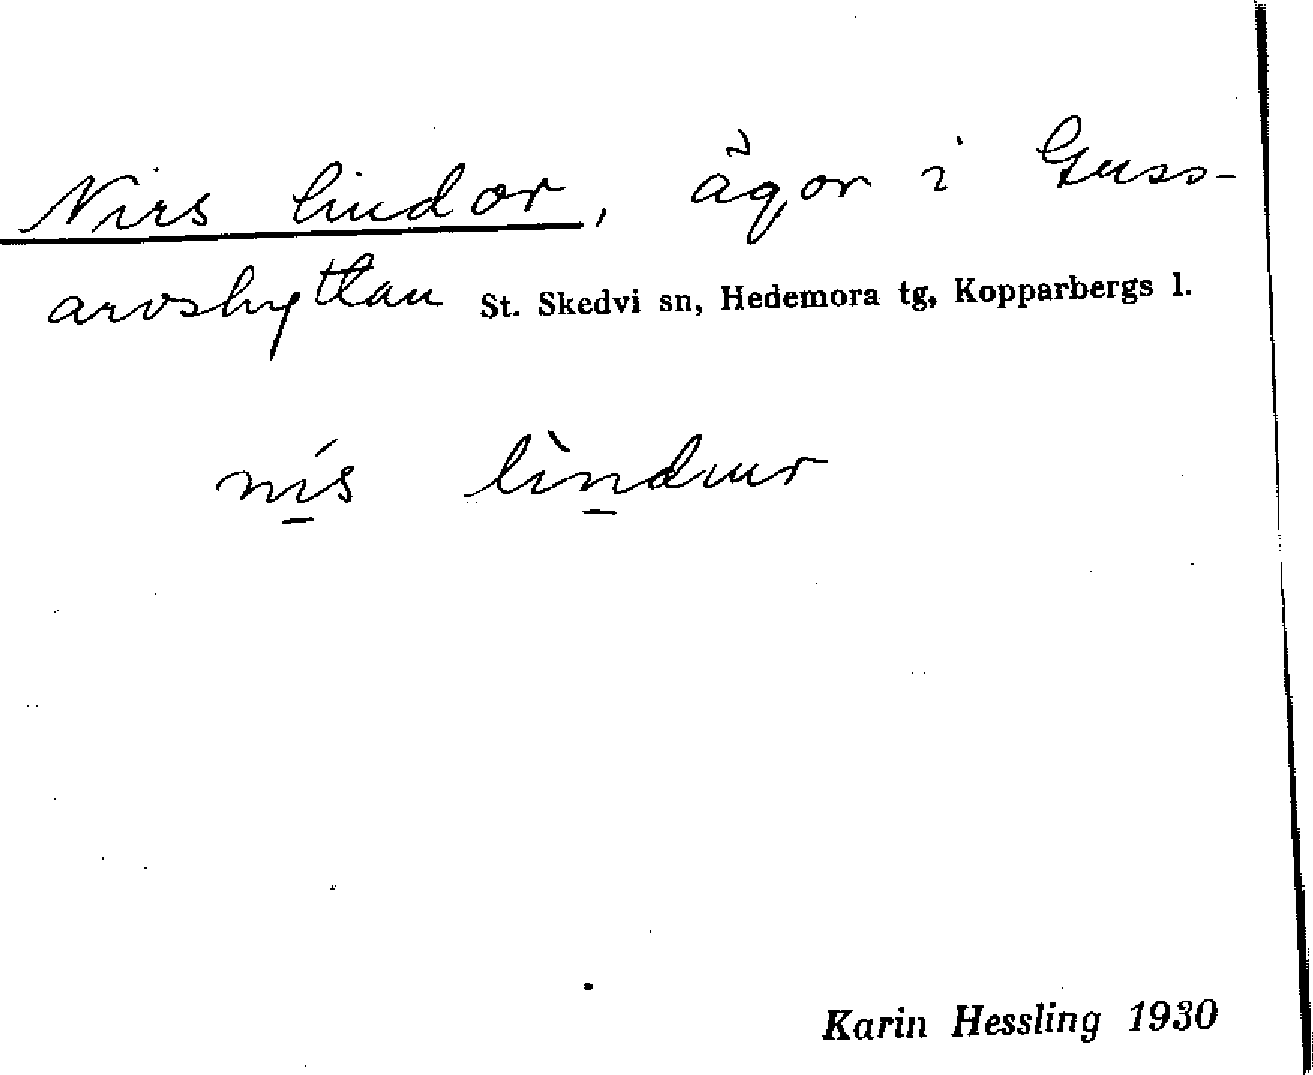 Nirs lindor, ägor i Guss-
arvshyttan St. Skedvi sn, Hedemora tg, Kopparbergs l.
nı́s lìndɯr
Karin Hessling 1930